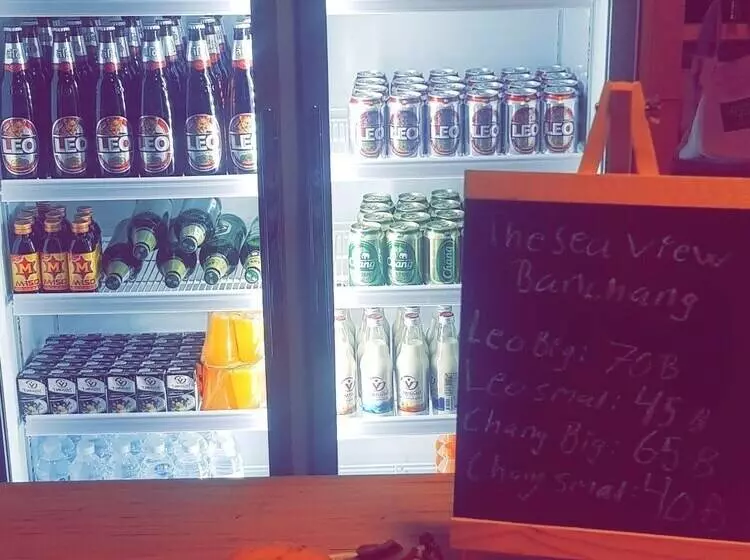 LEO LEO LEO LEO LEO LEO
LEO LEO LEO LEO LEO LEO
M M M
M-150 M-150 M-150
Chang Chang Chang
The Sea View
Banchang
Leo Big: 70B
Leo smal: 45B
Chang Big: 65B
Chang smal: 40B